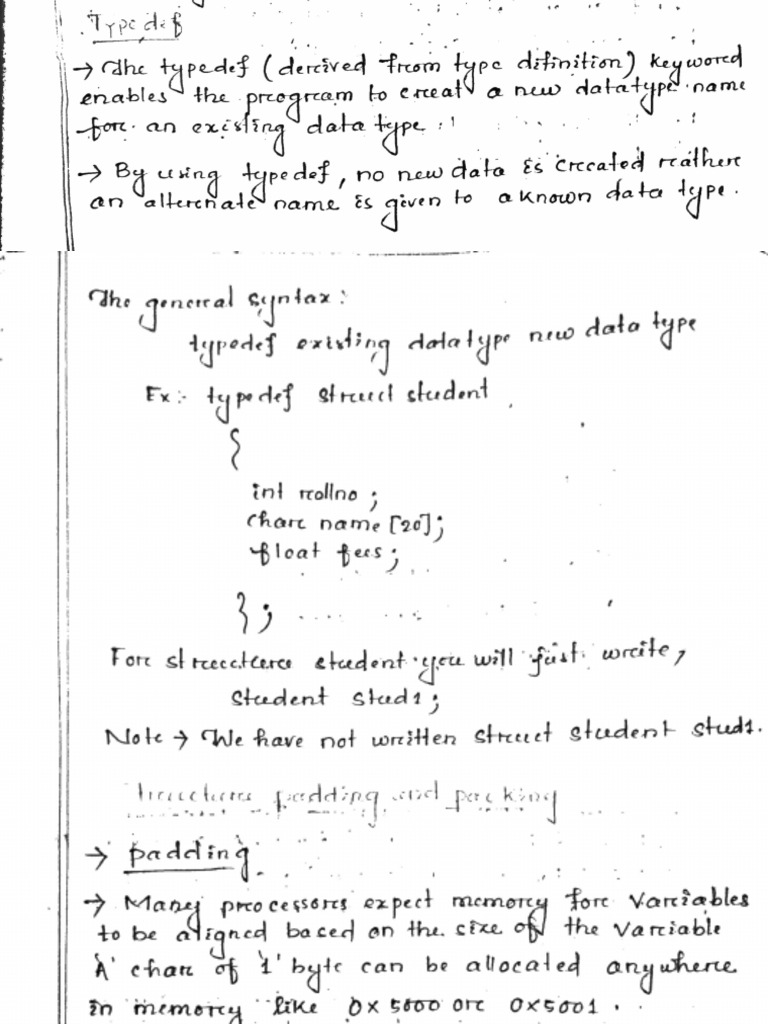 Typedef
→ The typedef (derived from type difinition) keyword
enables the program to creat a new datatype name
for an existing data type.
→ By using typedef, no new data is created rather
an alternate name is given to a known data type.
The general syntax:
typedef existing datatype new data type
Ex:- typedef struct student
{
int rollno;
char name [20];
float fees;
};
For structure student you will just write,
student stud1;
Note → We have not written struct student stud1.
Structure padding and packing
→ padding
→ Many processors expect memory for variables
to be aligned based on the size of the variable
'A' char of '1' byte can be allocated anywhere
in memory like 0x5000 or 0x5001.